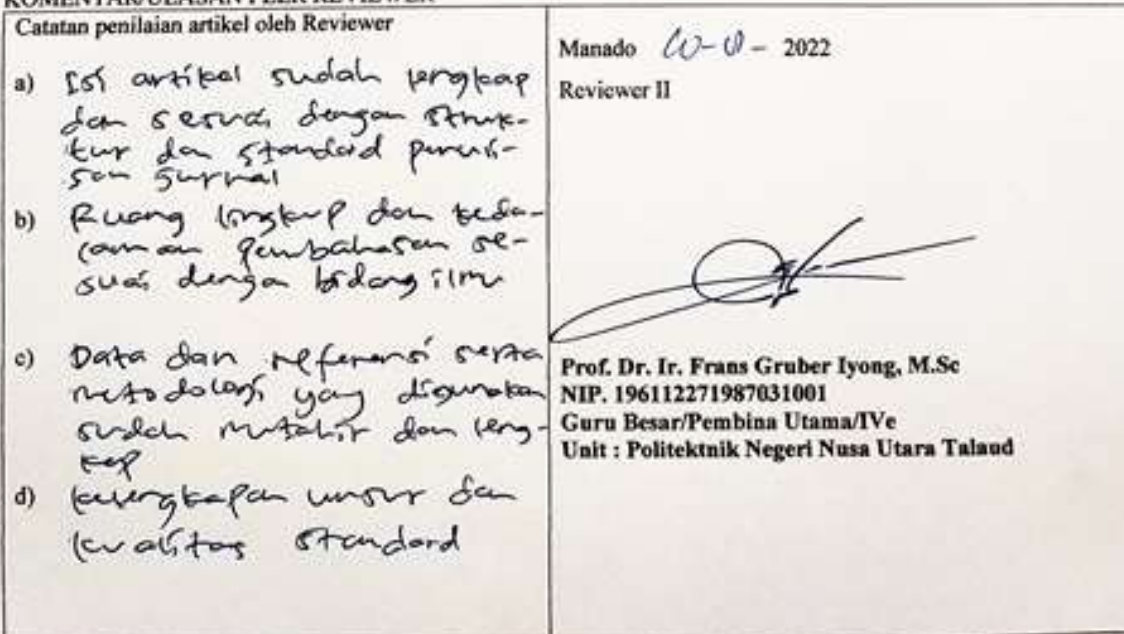 KOMENTAR/ULASAN PEER REVIEWER
Catatan penilaian artikel oleh Reviewer
a) Isi artikel sudah lengkap
dan sesuai dengan struk-
tur dan standard penuli-
san jurnal
b) Ruang lingkup dan keda-
laman pembahasan se-
suai dengan bidang ilmu
c) Data dan referensi serta
metodologi yang digunakan
sudah mutahir dan leng-
kap
d) kelengkapan unsur dan
kualitas standard
Manado 2022
Reviewer II
Prof. Dr. Ir. Frans Gruber Iyong, M.Sc
NIP. 196112271987031001
Guru Besar/Pembina Utama/IVe
Unit : Politektnik Negeri Nusa Utara Talaud